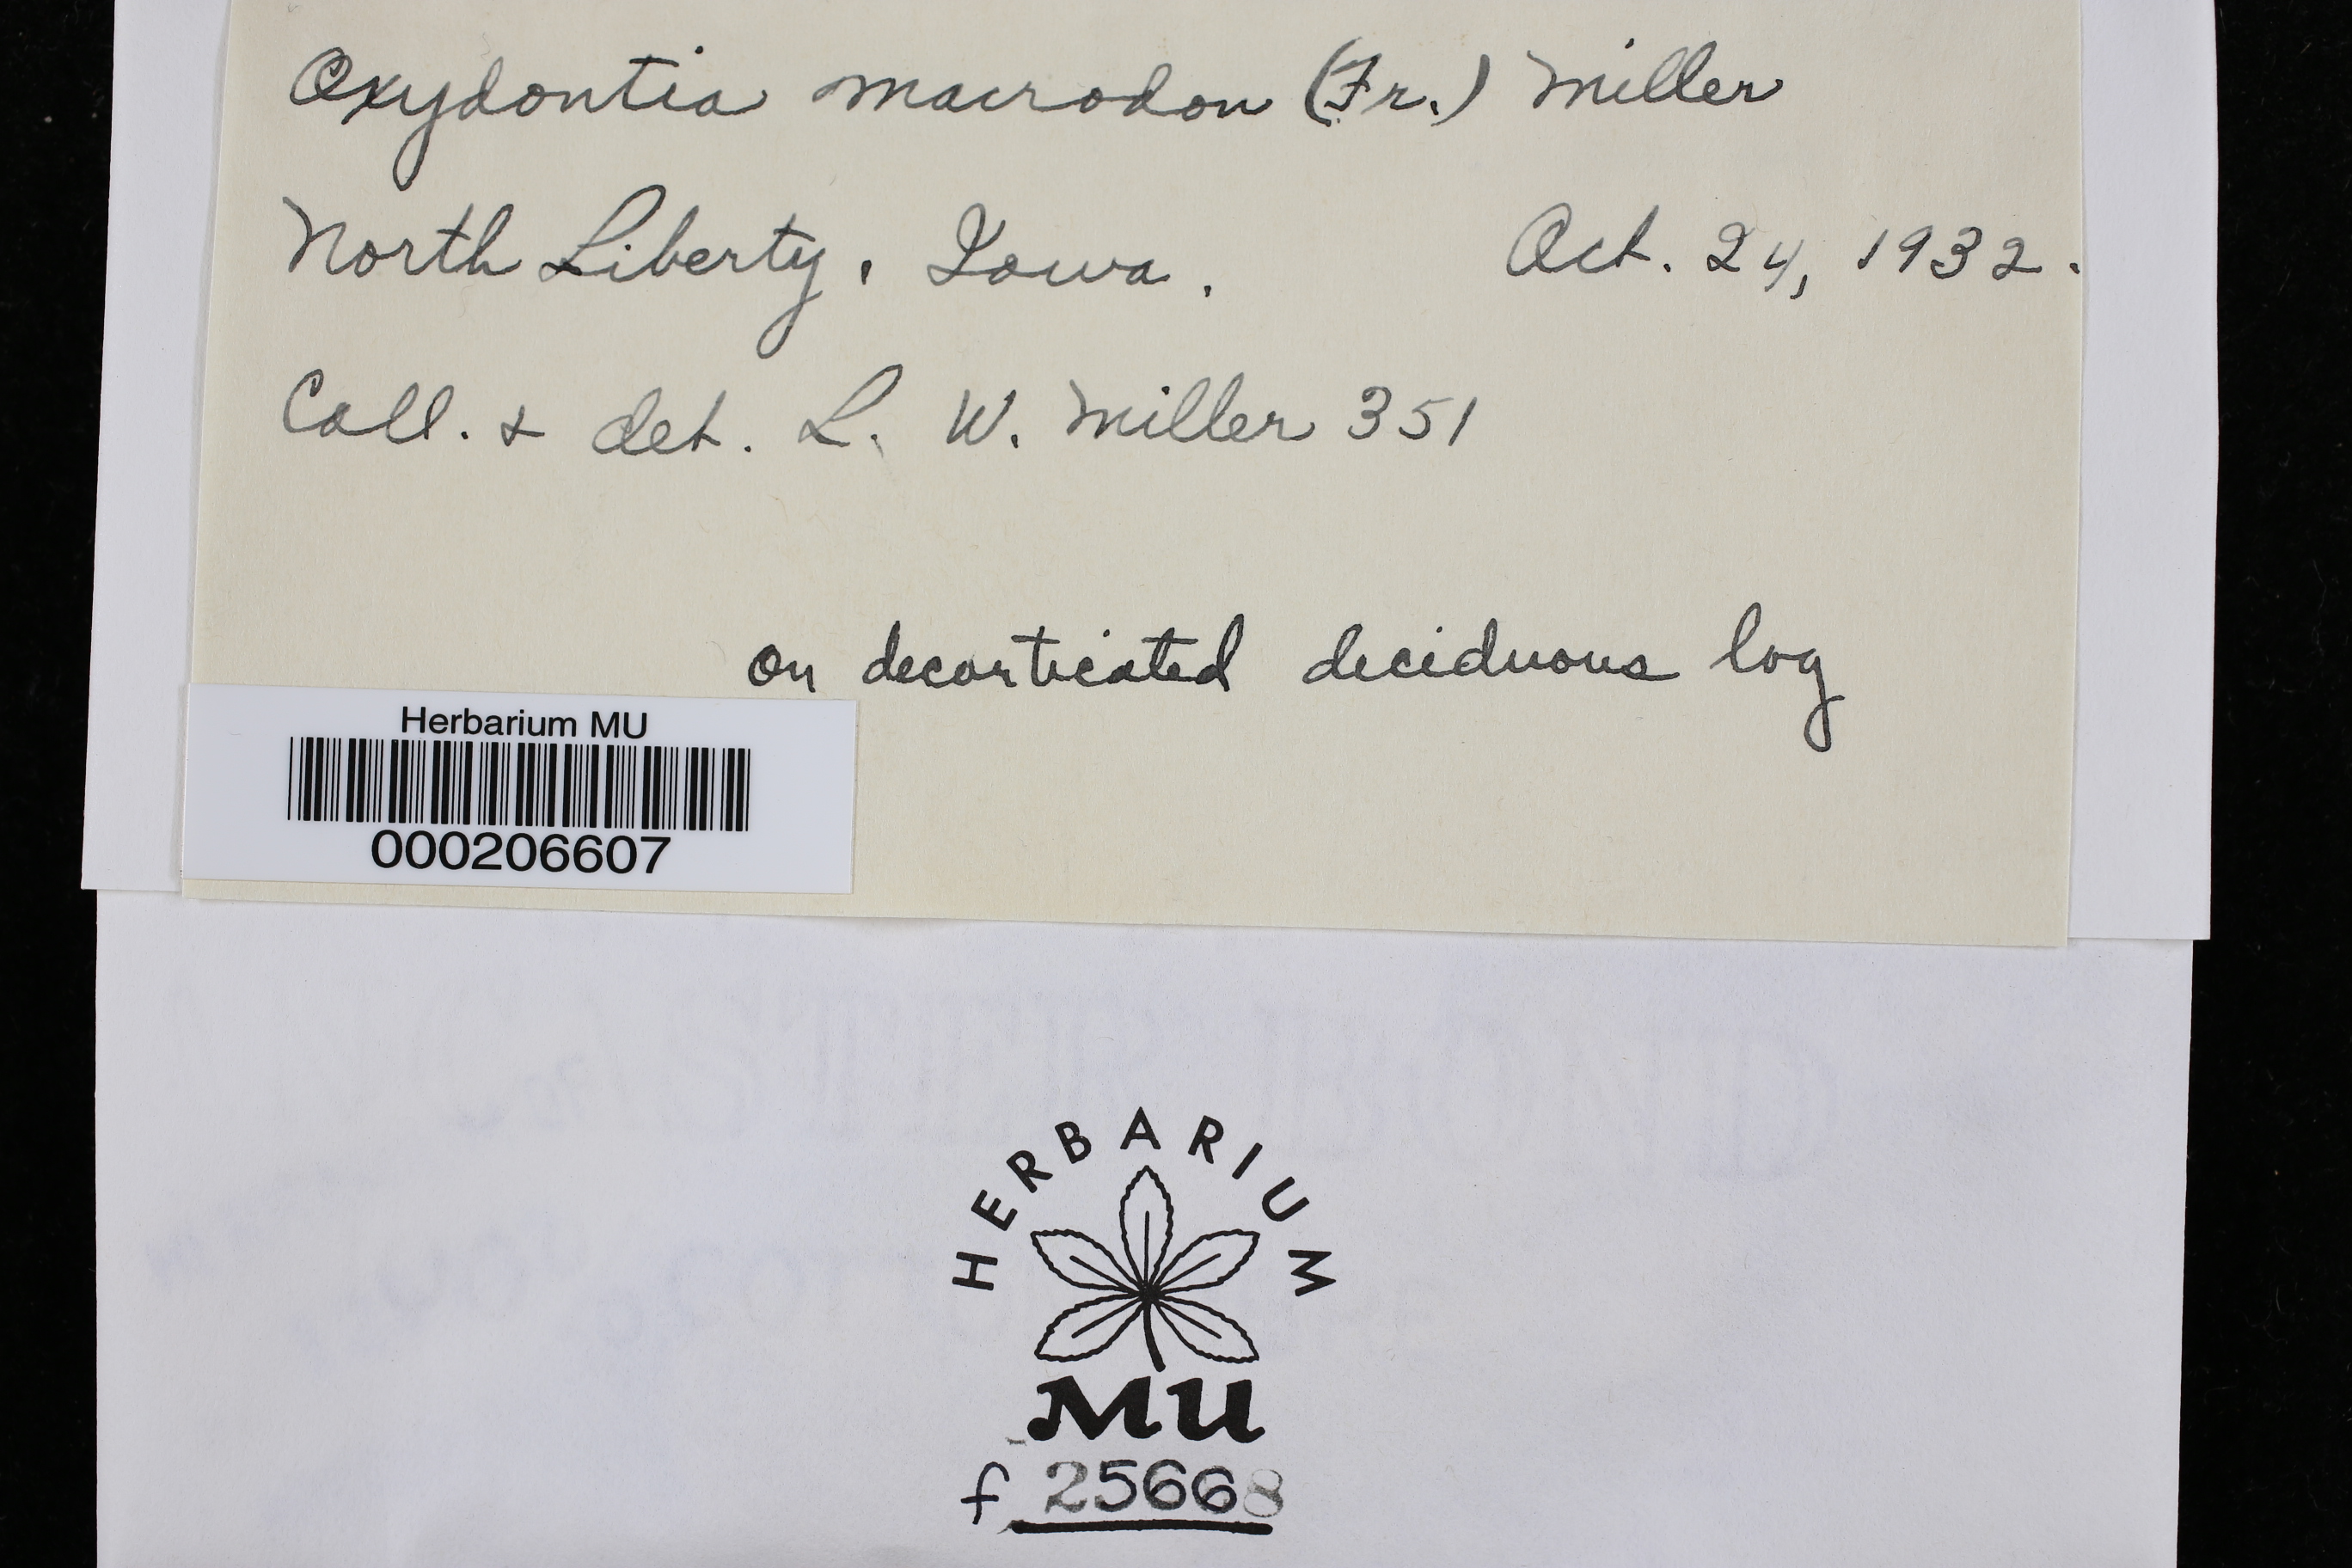 Oxydontia macrodon (Fr.) Miller
North Liberty, Iowa.
Oct. 24, 1932.
Coll. & det. L. W. Miller 351
on decorticated deciduous log
Herbarium MU
000206607
HERBARIUM
MU
f 25668